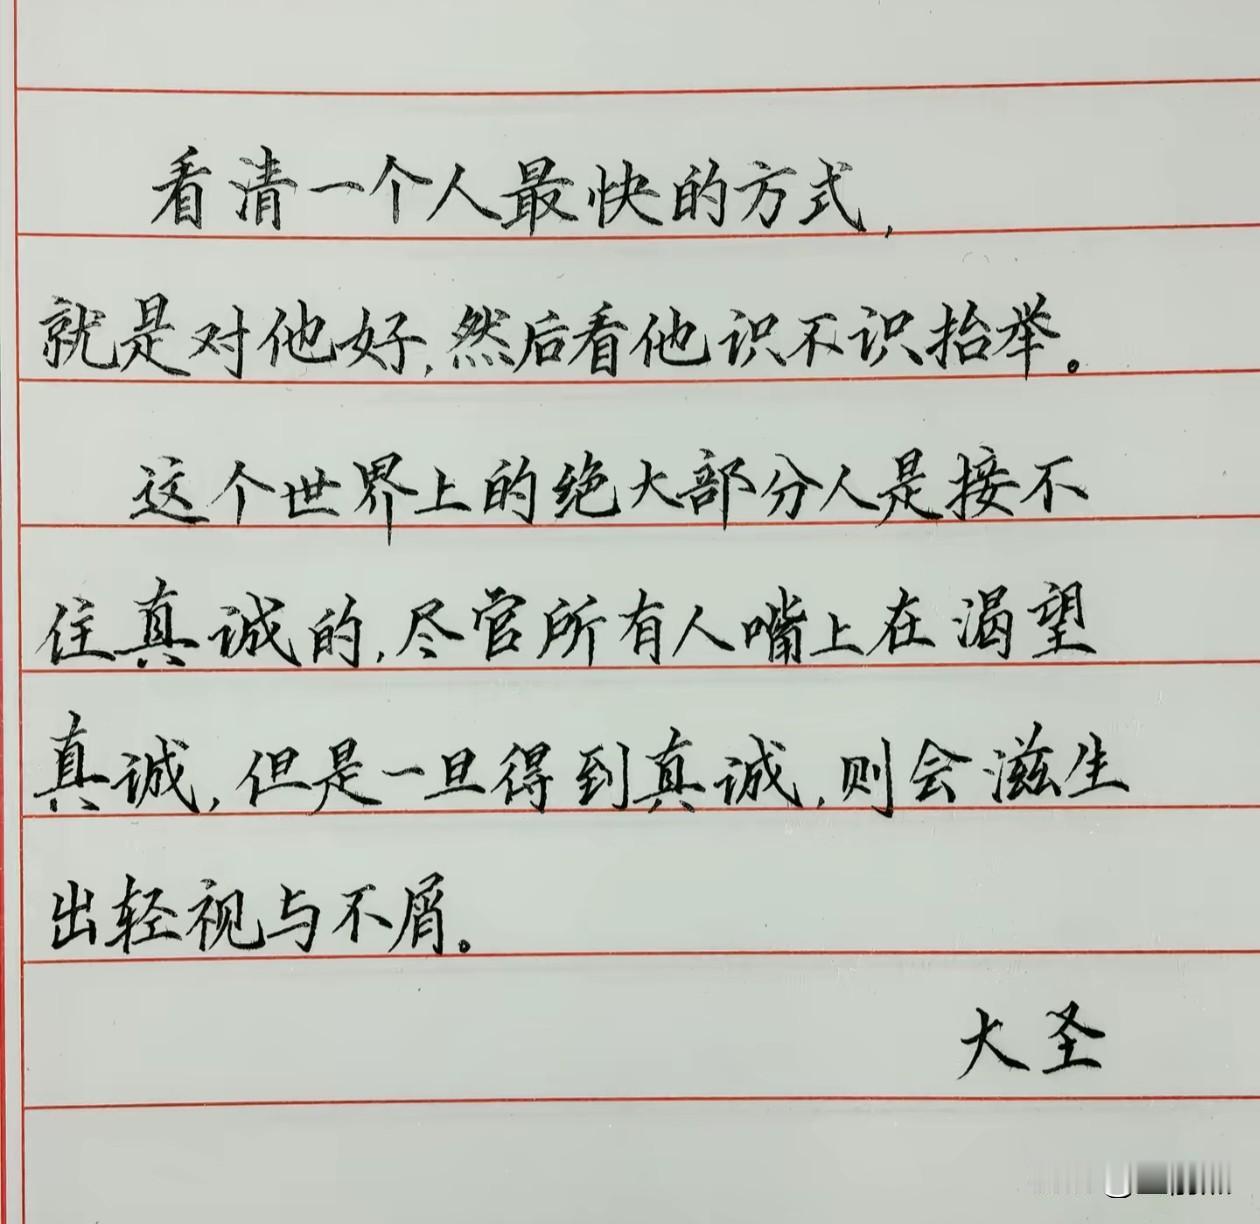 看清一个人最快的方式,
就是对他好,然后看他识不识抬举。
这个世界上的绝大部分人是接不
住真诚的,尽管所有人嘴上在渴望
真诚,但是一旦得到真诚,则会滋生
出轻视与不屑。
大圣